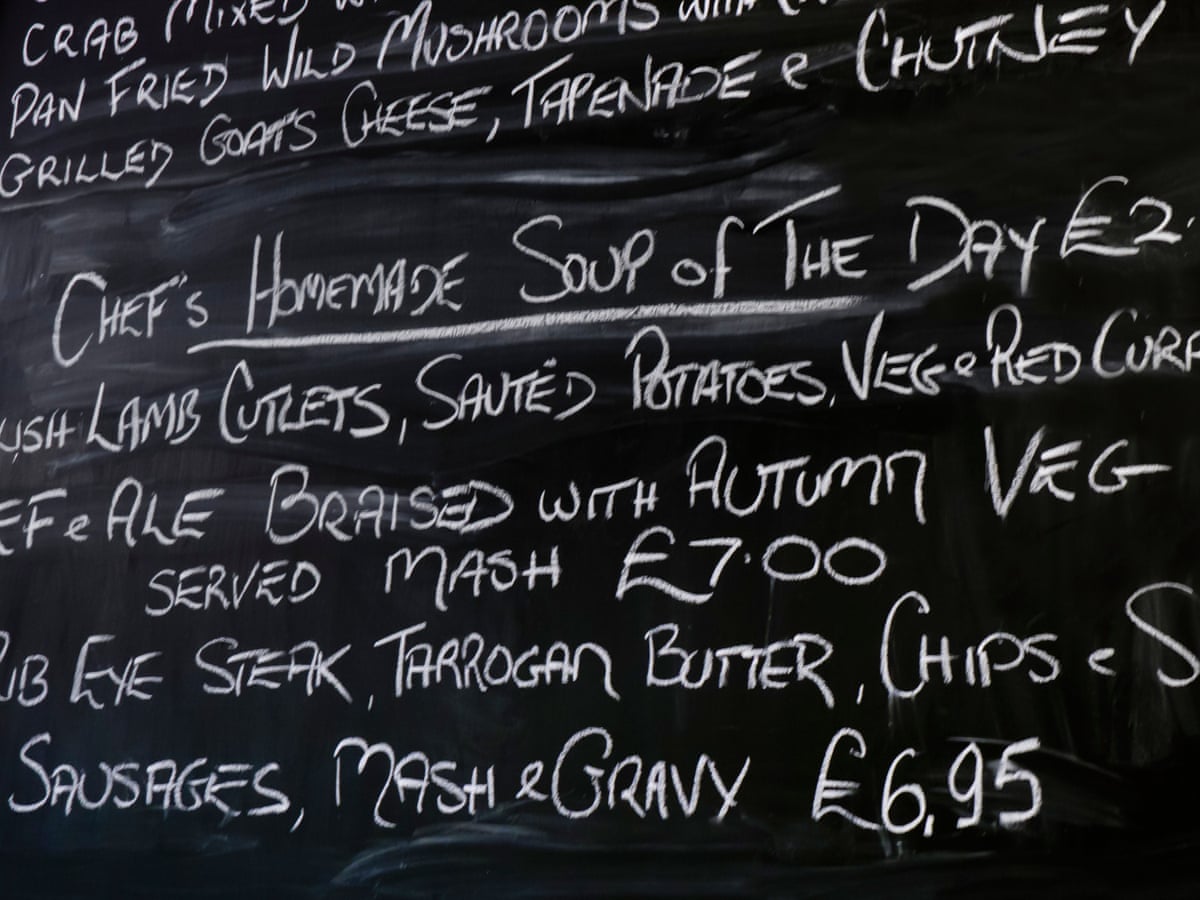 CRAB MIXED
PAN FRIED WILD MUSHROOMS WITH
GRILLED GOATS CHEESE, TAPENADE & CHUTNEY
CHEF'S HOMEMADE SOUP OF THE DAY £2.
LAMB CUTLETS, SAUTÉD POTATOES, VEG & RED CURR
EF & ALE BRAISED WITH AUTUMN VEG
SERVED MASH £7.00
RIB EYE STEAK, TARROGAN BUTTER, CHIPS & S
SAUSAGES, MASH & GRAVY £6,95